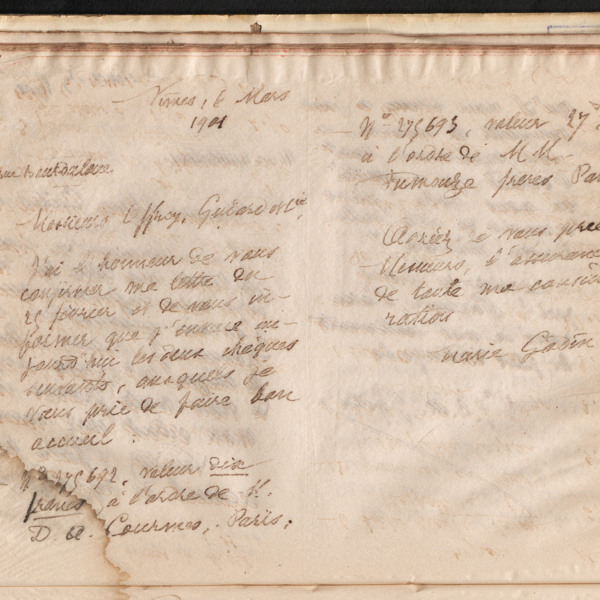 Nîmes, 6 Mars
1901
rue Bourdaloue
Messieurs Offroy, Guiard & Cie,
J'ai l'honneur de vous
confirmer ma lettre du
25 février et de vous in-
former que j'émets au-
jourd'hui les deux chèques
suivants, auxquels je
vous prie de faire bon
accueil :
No 275692, valeur dix
francs, à l'ordre de M.
D. A. Courmes, Paris;
No 275693, valeur 27
à l'ordre de M.M.
Fumouze frères Par
Agréez, je vous prie
Messieurs, l'assuran
de toute ma considé
ration
Marie Godin